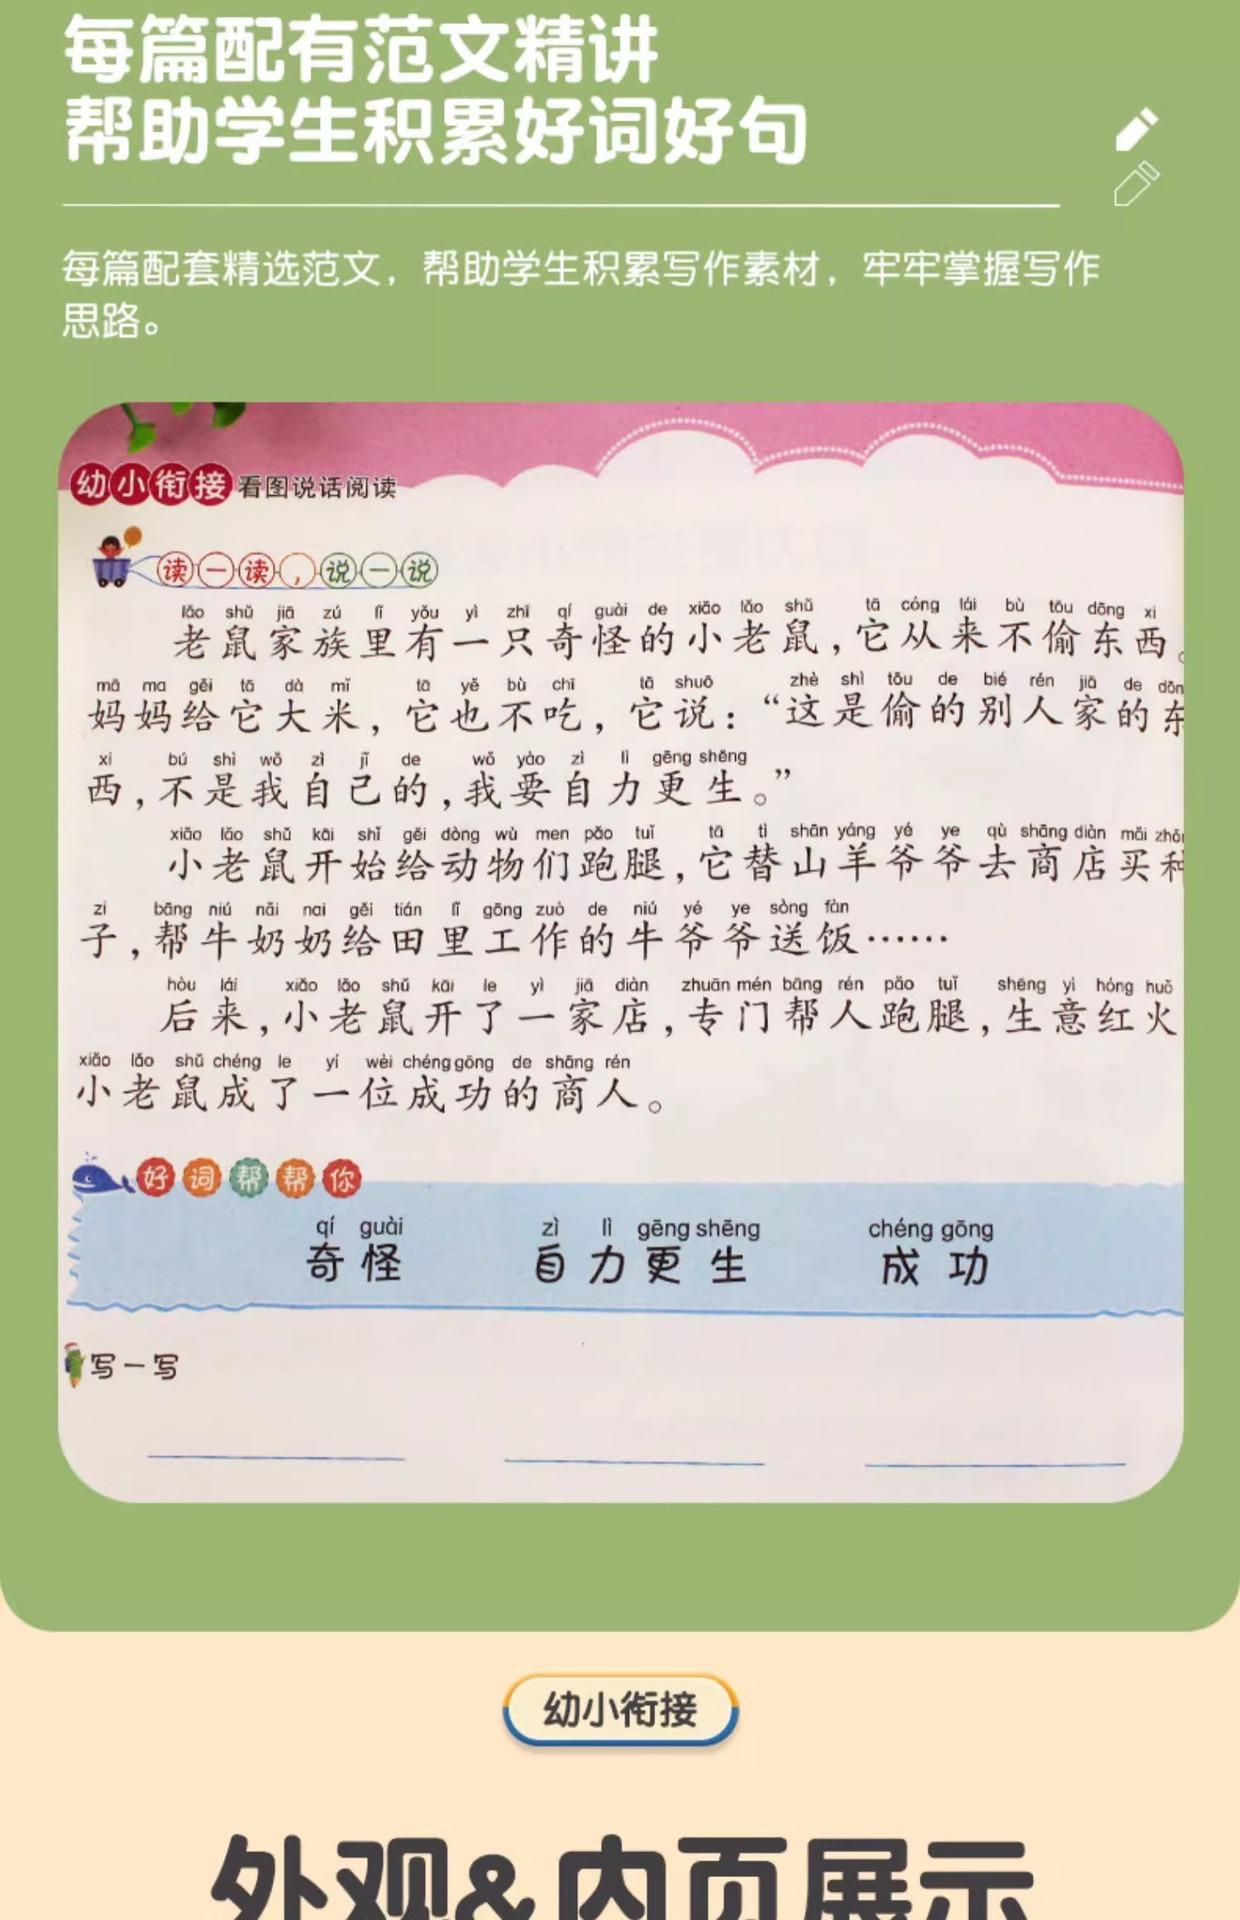 每篇配有范文精讲
帮助学生积累好词好句
每篇配套精选范文，帮助学生积累写作素材，牢牢掌握写作
思路。
幼小衔接 看图说话阅读
读一读，说一说
lǎo shǔ jiā zú lǐ yǒu yì zhī qí guài de xiǎo lǎo shǔ tā cóng lái bù tōu dōng xi
老鼠家族里有一只奇怪的小老鼠，它从来不偷东西。
mā ma gěi tā dà mǐ tā yě bù chī tā shuō zhè shì tōu de bié rén jiā de dōn
妈妈给它大米，它也不吃，它说：“这是偷的别人家的东
xi bú shì wǒ zì jǐ de wǒ yào zì lì gēng shēng
西，不是我自己的，我要自力更生。”
xiǎo lǎo shǔ kāi shǐ gěi dòng wù men pǎo tuǐ tā tì shān yáng yé ye qù shāng diàn mǎi zhǒ
小老鼠开始给动物们跑腿，它替山羊爷爷去商店买种
zi bāng niú nǎi nai gěi tián lǐ gōng zuò de niú yé ye sòng fàn
子，帮牛奶奶给田里工作的牛爷爷送饭……
hòu lái xiǎo lǎo shǔ kāi le yì jiā diàn zhuān mén bāng rén pǎo tuǐ shēng yì hóng huǒ
后来，小老鼠开了一家店，专门帮人跑腿，生意红火
xiǎo lǎo shǔ chéng le yí wèi chéng gōng de shāng rén
小老鼠成了一位成功的商人。
好词帮帮你
qí guài zì lì gēng shēng chéng gōng
奇怪 自力更生 成功
写一写
幼小衔接
外观&内页展示